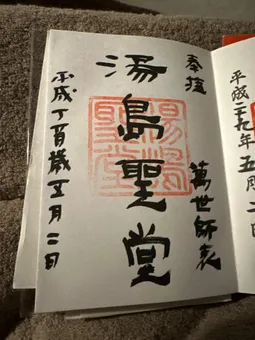 奉拝
萬世師表
湯島聖堂
平成丁酉歳五月二日
平成二十九年五月二日